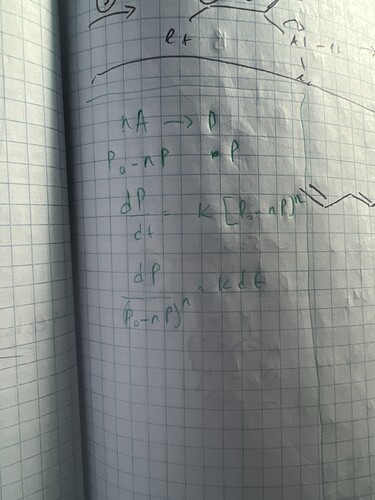 et
nA → P
P₀-nP P
dP/dt = k [P₀-nP)ⁿ
dP/(P₀-nP)ⁿ = k dt